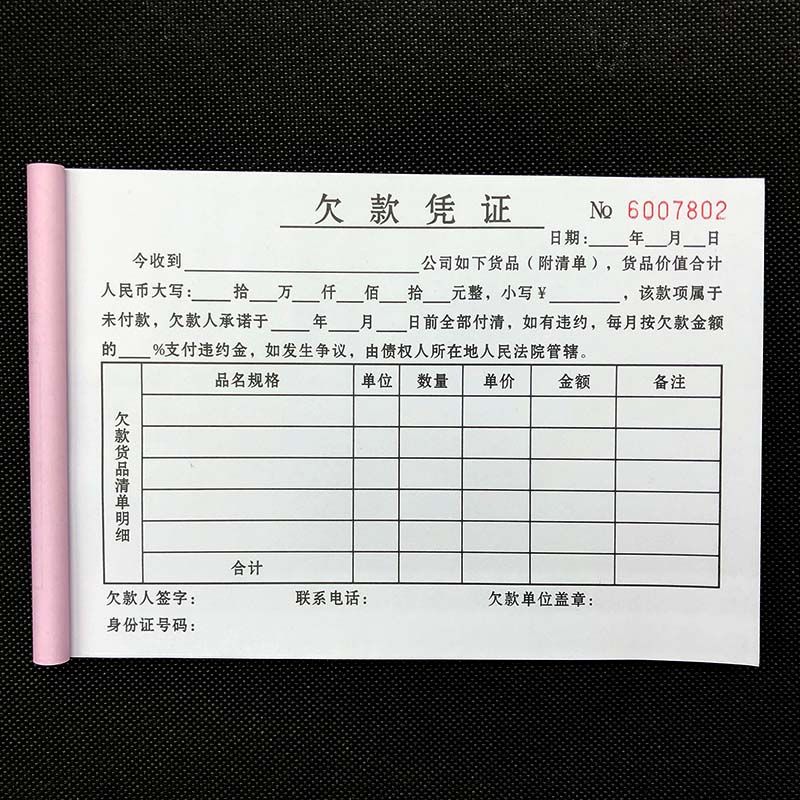 欠款凭证
№ 6007802
日期:____年__月__日
今收到____________________公司如下货品(附清单),货品价值合计
人民币大写:____拾__万__仟__佰__拾__元整,小写¥________,该款项属于
未付款,欠款人承诺于____年___月___日前全部付清,如有违约,每月按欠款金额
的___%支付违约金,如发生争议,由债权人所在地人民法院管辖。
品名规格 单位 数量 单价 金额 备注
欠款货品清单明细
合计
欠款人签字: 联系电话: 欠款单位盖章:
身份证号码: